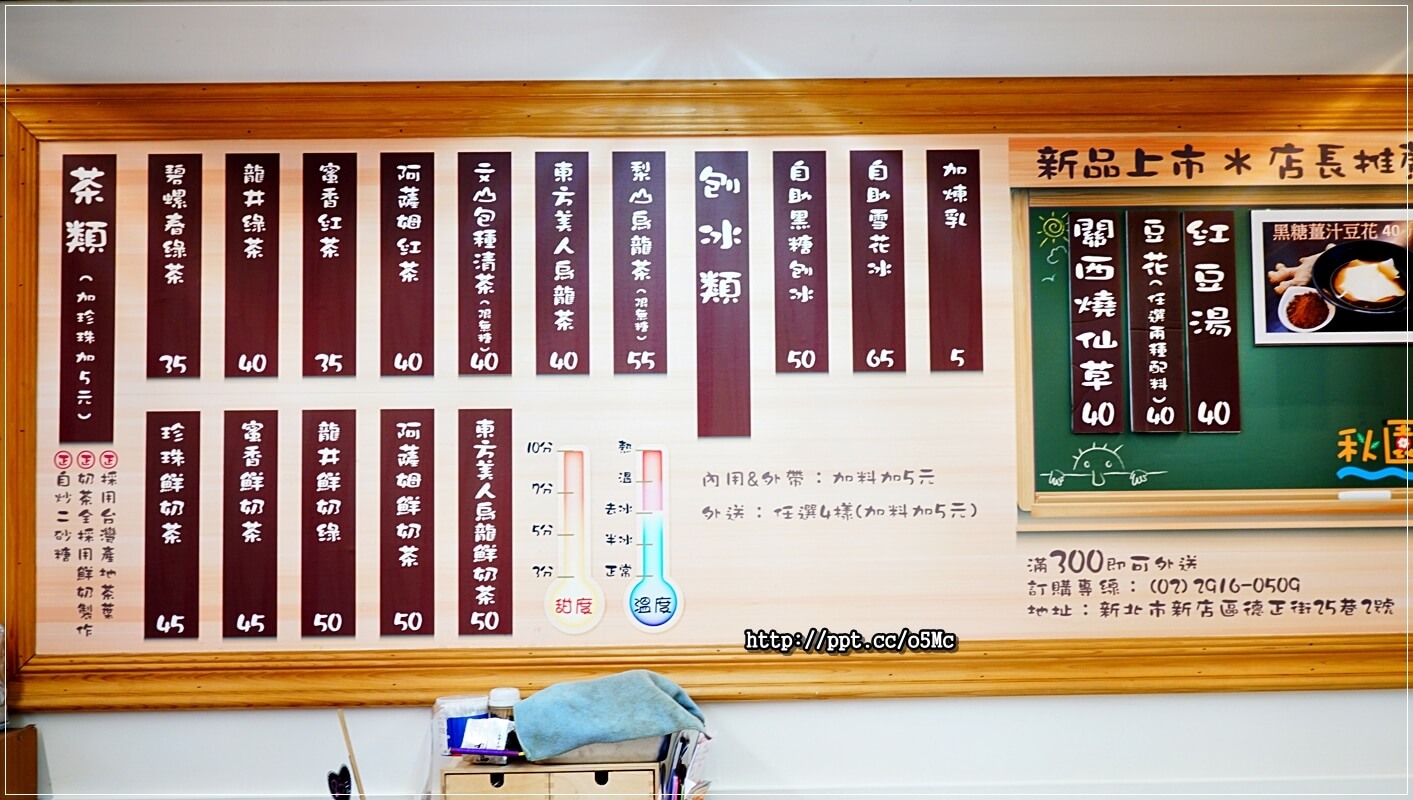 茶類（加珍珠加5元）
碧螺春綠茶 35
龍井綠茶 40
蜜香紅茶 35
阿薩姆紅茶 40
文山包種清茶（限無糖）40
東方美人烏龍茶 40
梨山烏龍茶（限無糖）55
刨冰類
自助黑糖刨冰 50
自助雪花冰 65
加煉乳 5
珍珠鮮奶茶 45
蜜香鮮奶茶 45
龍井鮮奶綠 50
阿薩姆鮮奶茶 50
東方美人烏龍鮮奶茶 50
正 採用台灣產地茶葉
正 奶茶全採用鮮奶製作
正 自炒二砂糖
10分
7分
5分
3分
甜度
熱
溫
去冰
半冰
正常
溫度
內用&外帶：加料加5元
外送：任選4樣(加料加5元)
新品上市＊店長推
關西燒仙草 40
豆花（任選兩種配料）40
紅豆湯 40
黑糖薑汁豆花 40
秋園
滿300即可外送
訂購專線：(02) 2916-0509
地址：新北市新店區德正街25巷2號
http://ppt.cc/o5Mc